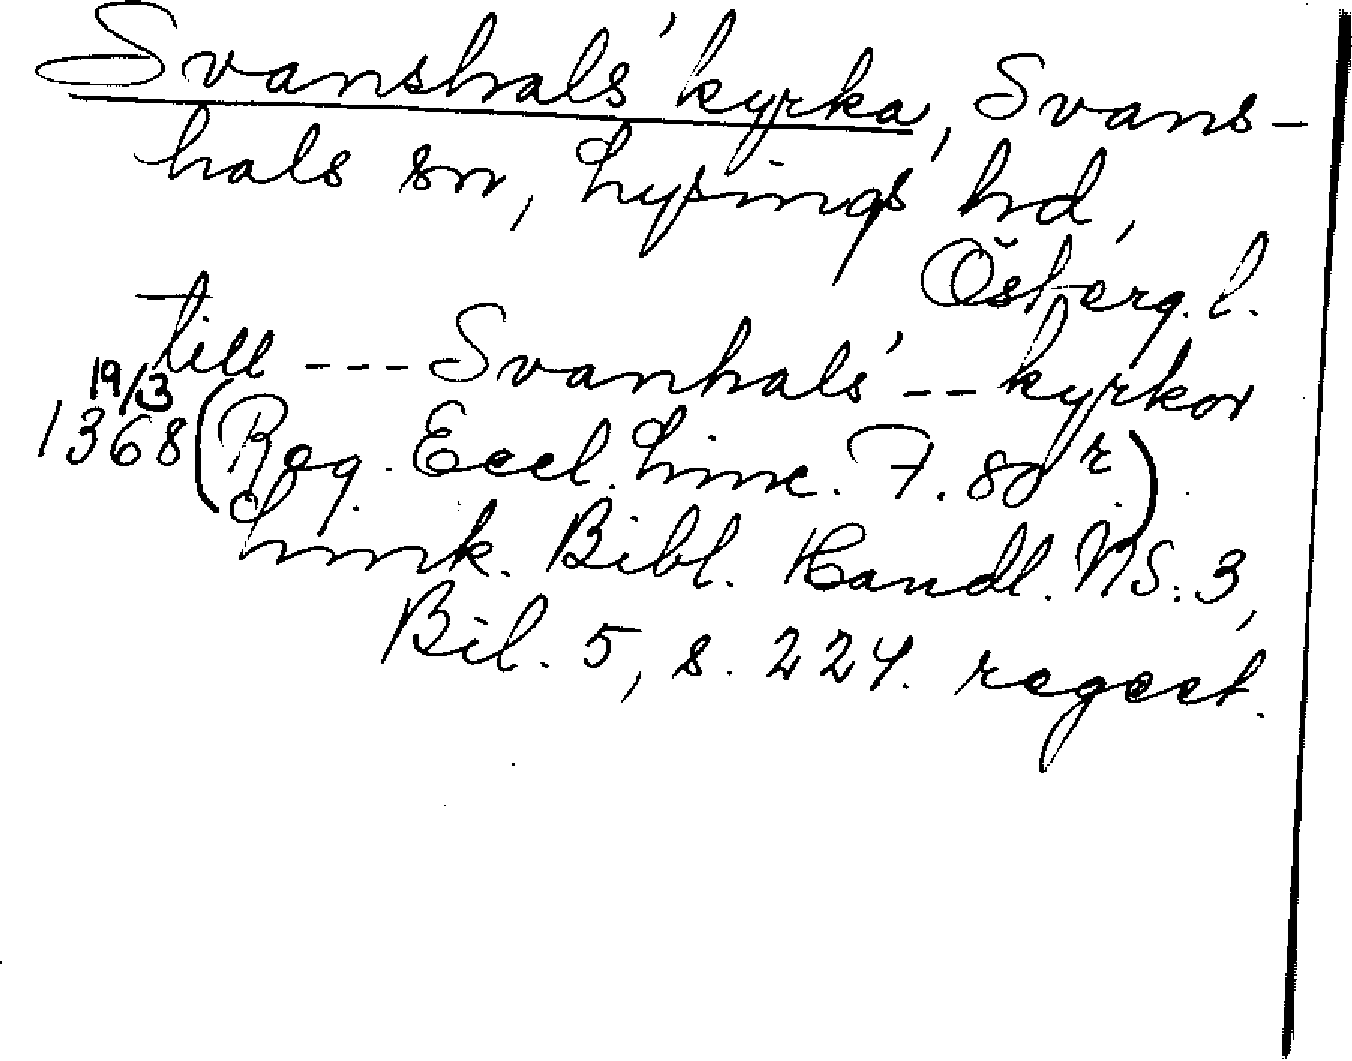 Svanshals' kyrka, Svans-
hals sn, Lysings hd,
Österg. l.
till --- Svanhals' -- kyrkor
19/3
1368 (Reg. Eccl. Linc. F. 80r)
Link. Bibl. Handl. NS. 3,
Bil. 5, s. 224. regest.